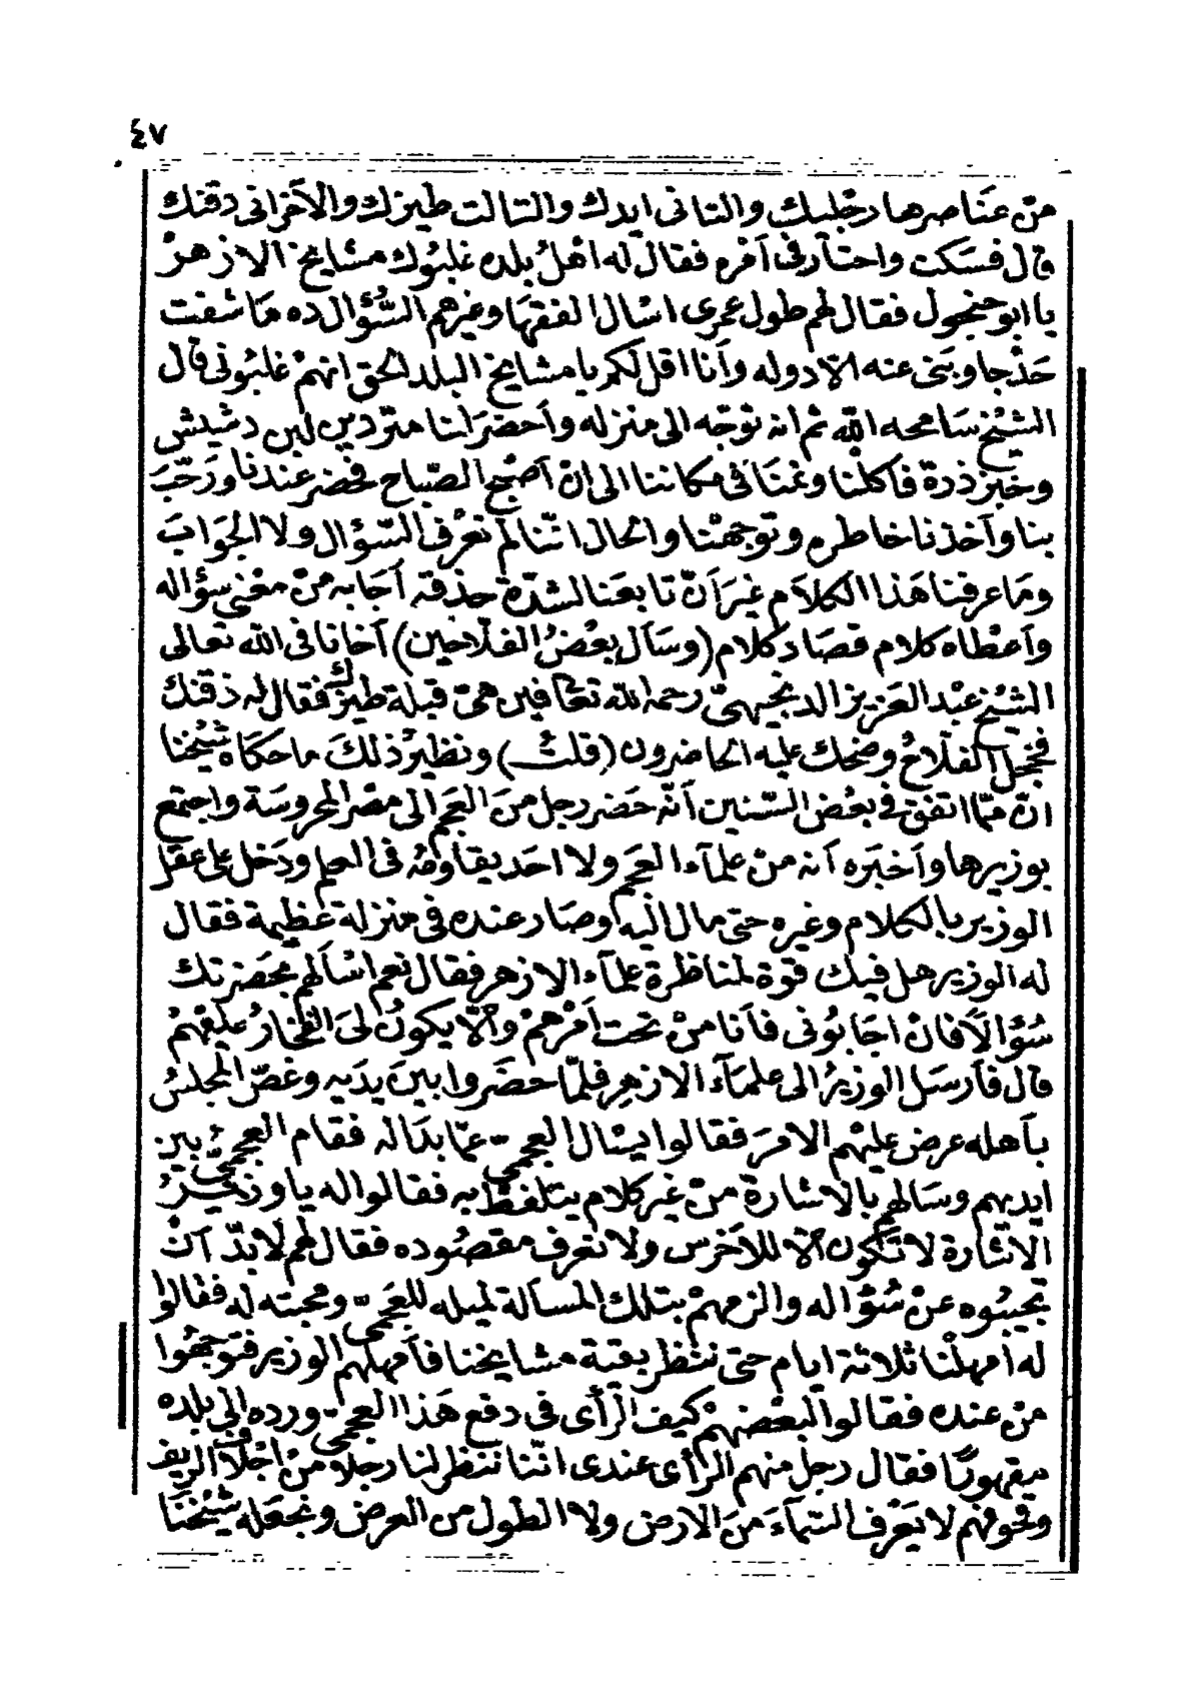 ٤٧
من عناصرها رجليك والتانى ايدك والتالت طيزك والآخرانى دقنك
قال فسكت واحتار فى امره فقال له اهل بلده غلبوك مشايخ الازهر
يا ابو حنجول فقال لهم طول عمرى اسال الفقها وغيرهم السؤال ده ما شفت
حد جاوبنى عنه الا دوله وأنا اقل لكم يا مشايخ البلد الحق انهم غلبونى قال
الشيخ سامحه الله ثم انه توجه الى منزله وأحضر لنا متردين لبن دشيش
وخبز ذرة فاكلنا ونمنا فى مكاننا الى ان أصبح الصباح فحضر عندنا ورحّب
بنا وآخذنا خاطره وتوجهنا والحال اننا لم نعرف السؤال ولا الجواب
وما عرفنا هذا الكلام غير أن تابعنا لشدة حذقه أجابه من معنى سؤاله
وأعطاه كلام قصاد كلام (وسأل بعض الفلاحين) أخانا فى الله تعالى
الشيخ عبد العزيز الدنجيهىّ رحمه الله تعالى فين هىّ قبلة طيزك فقال له ذقنك
فخجل الفلاح وضحك عليه الحاضرون (قلت) ونظير ذلك ما حكاه شيخنا
ان ممّا اتفق فى بعض السنين أنّه حضر رجل من العجم الى مصر المحروسة واجتمع
بوزيرها وأخبره أنه من علمآء العجم ولا احد يقاومه فى العلم ودخل على عقل
الوزير بالكلام وغيره حتى مال اليه وصار عنده فى منزلة عظيمة فقال
له الوزير هل فيك قوة لمناظرة علمآء الازهر فقال نعم اسألهم بحضرتك
سؤالاً فان اجابونى فأنا من تحت أمرهم والّا يكون لى الفخار عليهم
قال فأرسل الوزير الى علمآء الازهر فلمّا حضروا بين يديه وغصّ المجلس
بأهله عرض عليهم الامر فقالوا يسال العجمى عمّا بدا له فقام العجمى بين
ايديهم وسالهم بالاشارة من غير كلام يتلفظ به فقالوا له يا وزير
الاشارة لا تكون الا للأخرس ولا نعرف مقصوده فقال لهم لا بدّ أن
تجيبوه عن سؤاله والزمهم بتلك المسألة لميله للعجمى ومحبته له فقالوا
له أمهلنا ثلاثة ايام حتى ننظر بقية مشايخنا فأمهلهم الوزير فتوجهوا
من عنده فقالوا لبعضهم كيف الرأى فى دفع هذا العجمى ورده الى بلده
مقهورًا فقال رجل منهم الرأى عندى اننا ننظر لنا رجلاً من اجلاف الريف
وقحوفهم لا يعرف السّمآء من الارض ولا الطول من العرض ونجعله شيخنا